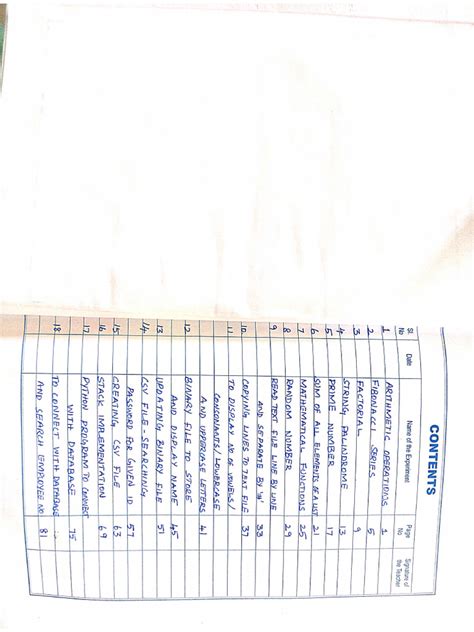 CONTENTS
Sl. No Date Name of the Experiment Page No Signature of the Teacher
1 ARITHMETIC OPERATIONS 1
2 FIBONACCI SERIES 5
3 FACTORIAL 9
4 STRING PALINDROME 13
5 PRIME NUMBER 17
6 SUM OF ALL ELEMENTS OF A LIST 21
7 MATHEMATICAL FUNCTIONS 25
8 RANDOM NUMBER 29
9 READ TEXT FILE LINE BY LINE
AND SEPARATE BY '#' 33
10. COPYING LINES TO TEXT FILE 37
11 TO DISPLAY NO OF VOWELS/
CONSONANTS/LOWERCASE
AND UPPERCASE LETTERS 41
12 BINARY FILE TO STORE
AND DISPLAY NAME 45
13. UPDATING BINARY FILE 51
14. CSV FILE - SEARCHING
PASSWORD FOR GIVEN ID 57
15. CREATING CSV FILE 63
16. STACK IMPLEMENTATION 69
17. PYTHON PROGRAM TO CONNECT
WITH DATABASE 75
18. TO CONNECT WITH DATABASE
AND SEARCH EMPLOYEE NO 81